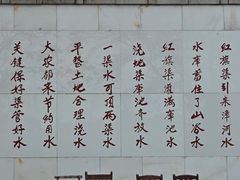 红旗渠引来漳河水
水库蓄住了山谷水
红旗渠灌满库池水
浇地渠库池齐放水
一渠水可顶两渠水
平整土地合理浇水
大家都来节约用水
关键保好渠管好水